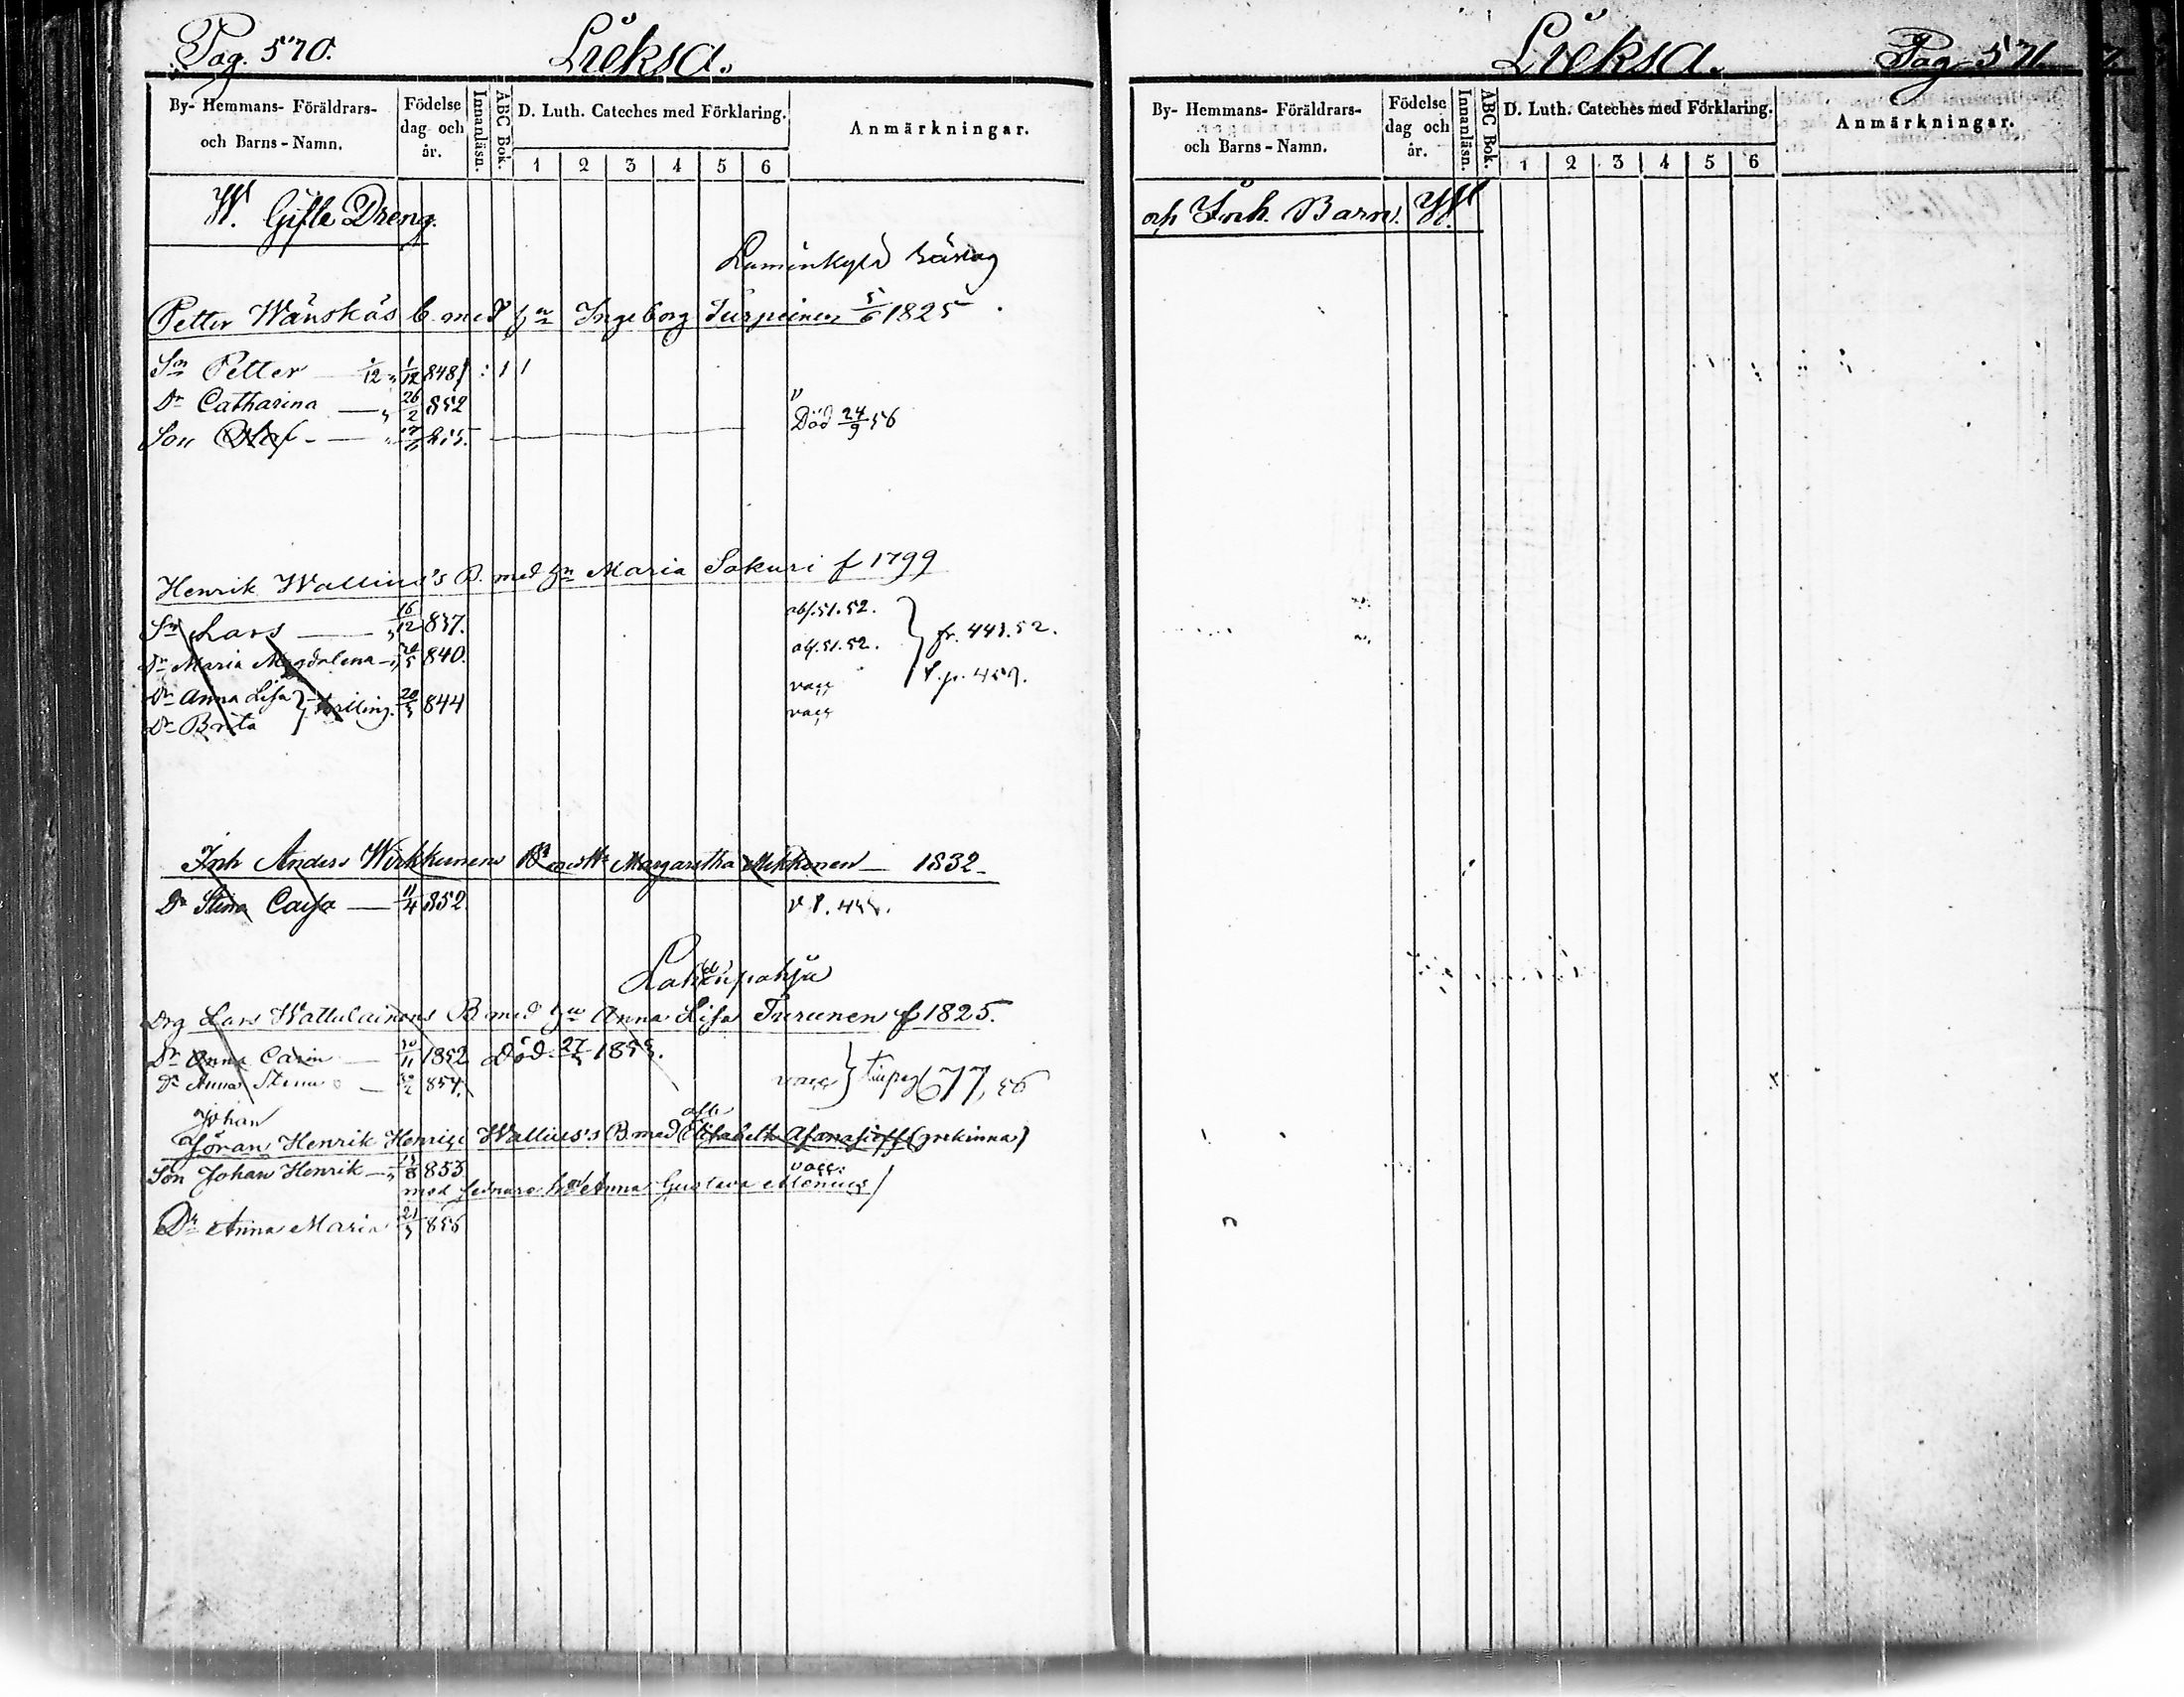 Pag. 570. Lieksa.
By- Hemmans- Föräldrars- och Barns-Namn. Födelse dag och år. Innanläsn. ABC Bok. D. Luth. Cateches med Förklaring. 1 2 3 4 5 6 Anmärkningar.
W. Gifte Dreng.
Petter Wänskäs B. med hu Ingeborg Turpeinen 5/6 1825
Sn Petter 1/12 848
Dr Catharina 26/2 852 v
Son Olof Död 24/9 56
Henrik Wallius's B. med hn Maria Sakuri f 1799
Sn Lars 16/12 837. abs. 51. 52.
Dr Maria Magdalena 840. abs. 51. 52. fr. 443. 52.
Dr Anna Lisa vacc
Dr Brita 20/5 844 vacc
Inh Anders Wirkkunens B med h Margaretha Mikkonen 1832
Dr Stina Caisa 11/4 852.
Drg Lars Wattulainens B med hu Anna Lisa Turunen f 1825.
Dr Anna Carin 1852 Död
Dr Anna Stina 854. vacc 677, 56
Johan
Jöran Henrik Henrics Wallius's B. med Elisabeth Afanasieff (grekinna)
Son Johan Henrik 853 vacc.
med Anna Gustava
Dr Anna Maria 21/5 856
Lieksa. Pag 571.
By- Hemmans- Föräldrars- och Barns-Namn. Födelse dag och år. Innanläsn. ABC Bok. D. Luth. Cateches med Förklaring. 1 2 3 4 5 6 Anmärkningar.
och Inh. Barn. W